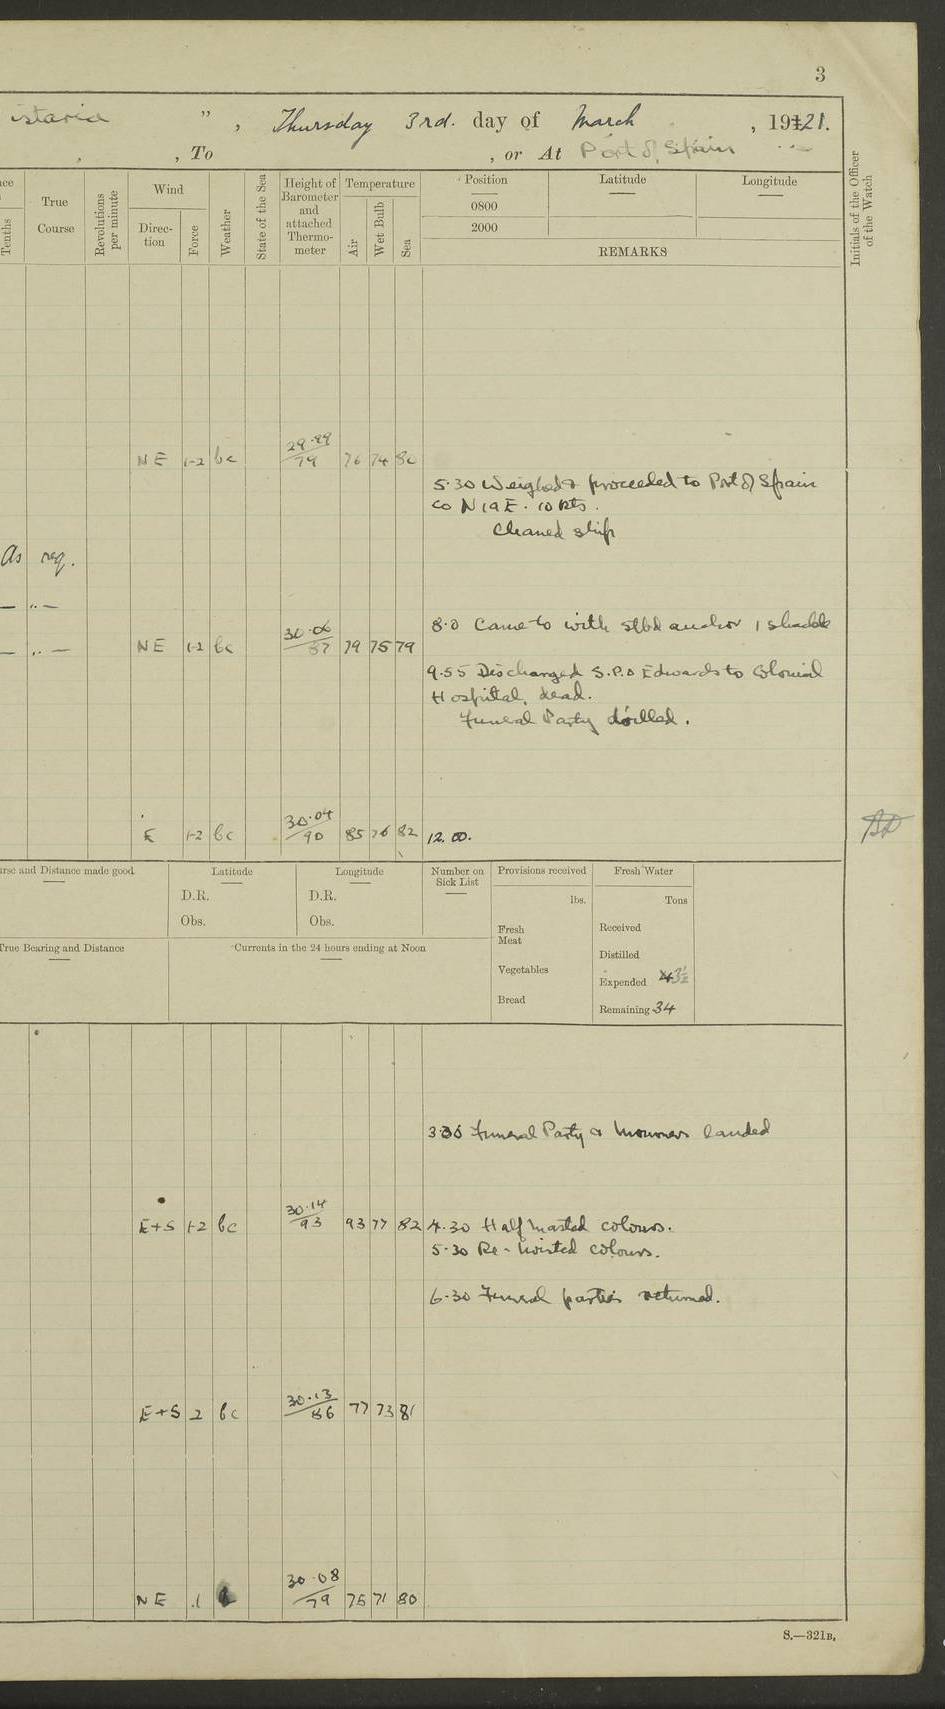 3
istaria " , Thursday 3rd. day of March , 1921.
, To , or At Port of Spain
Tenths
True Course
Revolutions per minute
Wind
Direc- tion
Force
Weather
State of the Sea
Height of Barometer and attached Thermo- meter
Temperature
Air
Wet Bulb
Sea
Position
0800
2000
Latitude
Longitude
REMARKS
Initials of the Officer of the Watch
NE 1-2 bc 29.99/79 76 74 80
5.30 Weighed & proceeded to Port of Spain
Co N19E. 10 kts.
Cleaned ship
As req.
— " —
8.0 Came to with stbd anchor 1 shackle
— " — NE 1-2 bc 30.06/87 79 75 79
9.55 Discharged S.P.O Edwards to Colonial
Hospital, dead.
Funeral Party drilled.
E 1-2 bc 30.04/90 85 76 82 12.00.
urse and Distance made good
Latitude
D.R.
Obs.
Longitude
D.R.
Obs.
Number on Sick List
Provisions received
lbs.
Fresh Meat
Vegetables
Bread
Fresh Water
Tons
Received
Distilled
Expended 3½
Remaining 34
True Bearing and Distance
Currents in the 24 hours ending at Noon
3.30 Funeral Party & Mourners landed
E+S 1-2 bc 30.14/93 93 77 82 4.30 Half masted colours.
5.30 Re-hoisted colours.
6.30 Funeral parties returned.
E+S 2 bc 30.13/86 77 73 81
NE 1 b 30.08/79 75 71 80
S.—321B,